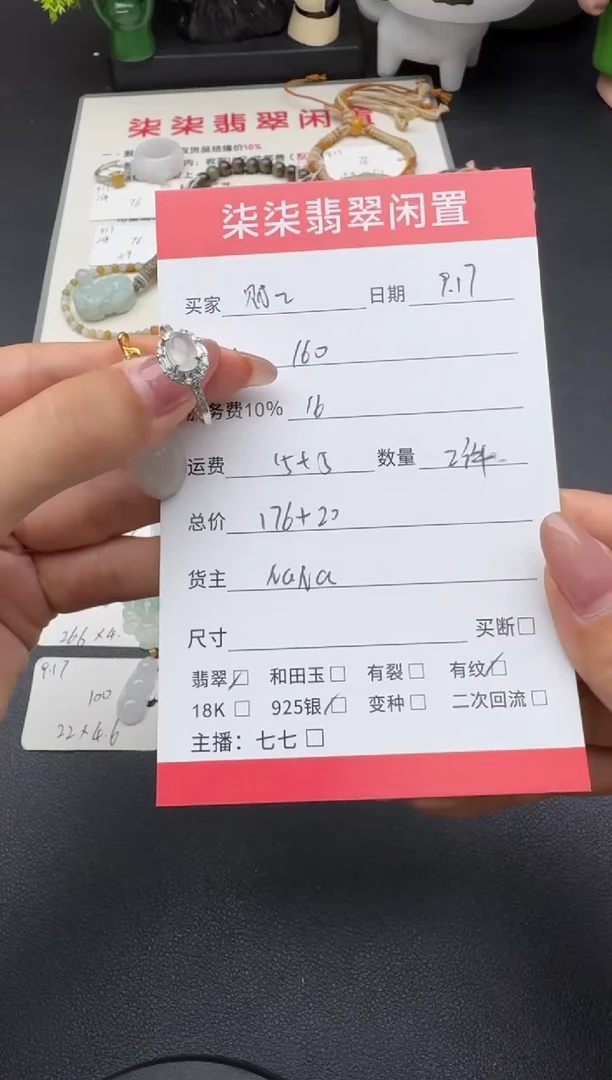 柒柒翡翠闲置
柒柒翡翠闲置
买家 日期 9.17
160
服务费10% 16
运费 15+5 数量 2件
总价 176+20
货主 NANA
尺寸 买断☐
翡翠☑ 和田玉☐ 有裂☐ 有纹☑
18K ☐ 925银☑ 变种☐ 二次回流☐
主播：七七☐
266×4.
9.17
100
22×4.6